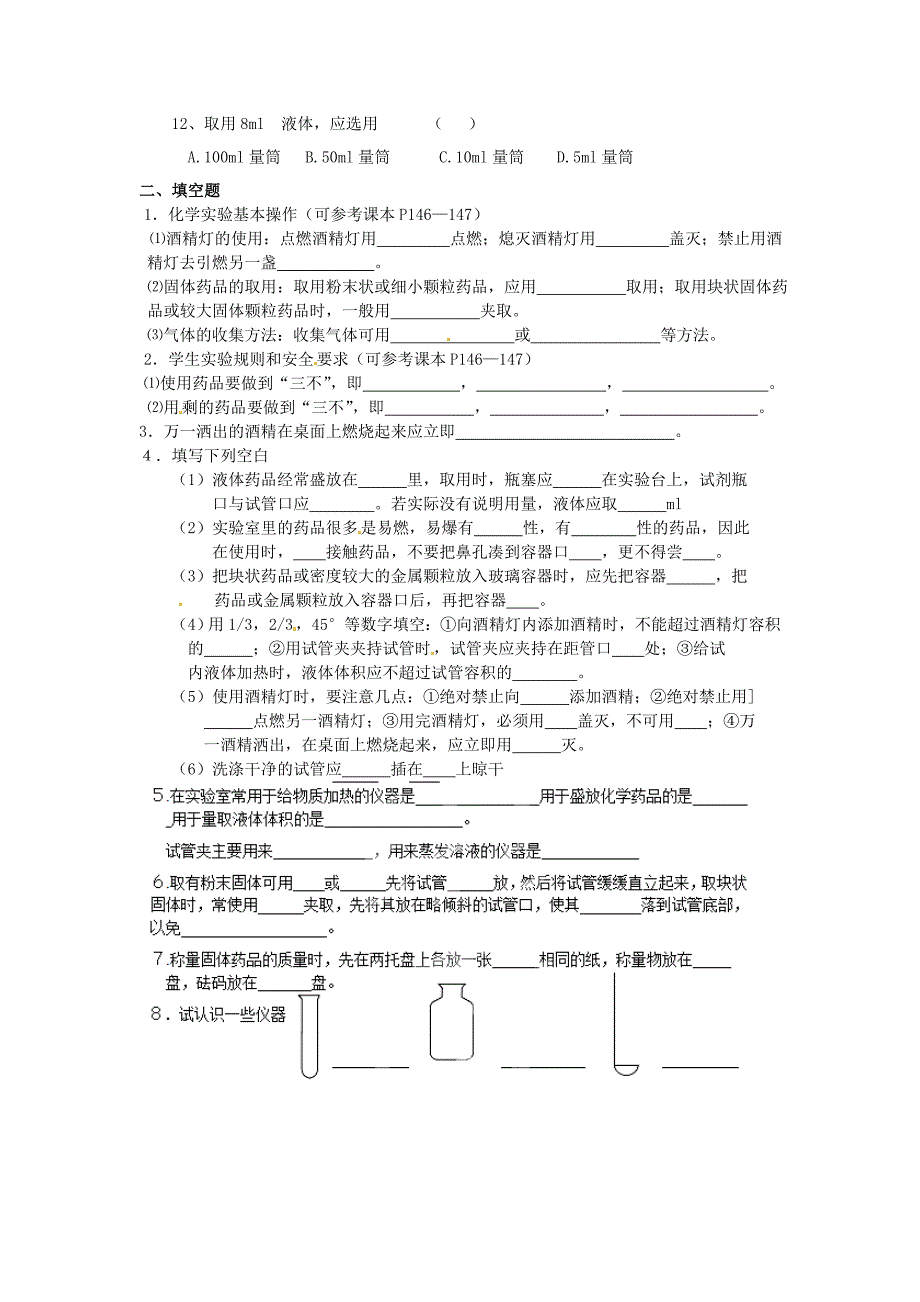 12、取用8ml 液体，应选用 （ ）
A.100ml量筒 B.50ml量筒 C.10ml量筒 D.5ml量筒
二、填空题
1．化学实验基本操作（可参考课本P146—147）
⑴酒精灯的使用：点燃酒精灯用_________点燃；熄灭酒精灯用_________盖灭；禁止用酒
精灯去引燃另一盏____________。
⑵固体药品的取用：取用粉末状或细小颗粒药品，应用___________取用；取用块状固体药
品或较大固体颗粒药品时，一般用___________夹取。
⑶气体的收集方法：收集气体可用_______________或________________等方法。
2．学生实验规则和安全要求（可参考课本P146—147）
⑴使用药品要做到“三不”，即____________，________________，__________________。
⑵用剩的药品要做到“三不”，即___________，______________，_________________。
3．万一洒出的酒精在桌面上燃烧起来应立即___________________________。
４．填写下列空白
（1）液体药品经常盛放在______里，取用时，瓶塞应______在实验台上，试剂瓶
口与试管口应________。若实际没有说明用量，液体应取______ml
（2）实验室里的药品很多是易燃，易爆有______性，有________性的药品，因此
在使用时，____接触药品，不要把鼻孔凑到容器口____，更不得尝____。
（3）把块状药品或密度较大的金属颗粒放入玻璃容器时，应先把容器______，把
药品或金属颗粒放入容器口后，再把容器____。
（4）用1/3，2/3，45°等数字填空：①向酒精灯内添加酒精时，不能超过酒精灯容积
的______；②用试管夹夹持试管时，试管夹应夹持在距管口____处；③给试
内液体加热时，液体体积应不超过试管容积的________。
（5）使用酒精灯时，要注意几点：①绝对禁止向______添加酒精；②绝对禁止用]
______点燃另一酒精灯；③用完酒精灯，必须用____盖灭，不可用____；④万
一酒精洒出，在桌面上燃烧起来，应立即用______灭。
（6）洗涤干净的试管应______插在____上晾干
５.在实验室常用于给物质加热的仪器是________________用于盛放化学药品的是_______
_用于量取液体体积的是__________________。
试管夹主要用来_____________，用来蒸发溶液的仪器是_____________
６.取有粉末固体可用____或______先将试管______放，然后将试管缓缓直立起来，取块状
固体时，常使用______夹取，先将其放在略倾斜的试管口，使其________落到试管底部，
以免___________________。
７.称量固体药品的质量时，先在两托盘上各放一张______相同的纸，称量物放在_____
盘，砝码放在_______盘。
８．试认识一些仪器 __________ ___________ __________